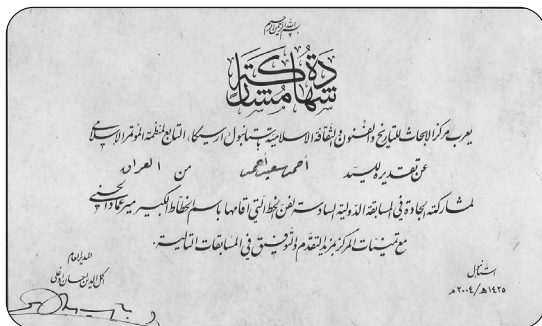 بسم الله الرحمن الرحيم
شهادة مشاركة
يعرب مركز الأبحاث للتاريخ والفنون والثقافة الإسلامية باستانبول ارسيكا، التابع لمنظمة المؤتمر الإسلامي
عن تقديره للسيد أحمد سعيد أحمد من العراق
لمشاركته الجادة في المسابقة الدولية السادسة لفن الخط التي أقامها باسم الخطاط الكبير مير عماد الحسني
مع تمنيات المركز بمزيد التقدم والتوفيق في المسابقات التالية.
المدير العام
أكمل الدين إحسان اوغلى
استانبول
١٤٢٥هـ/٢٠٠٤م